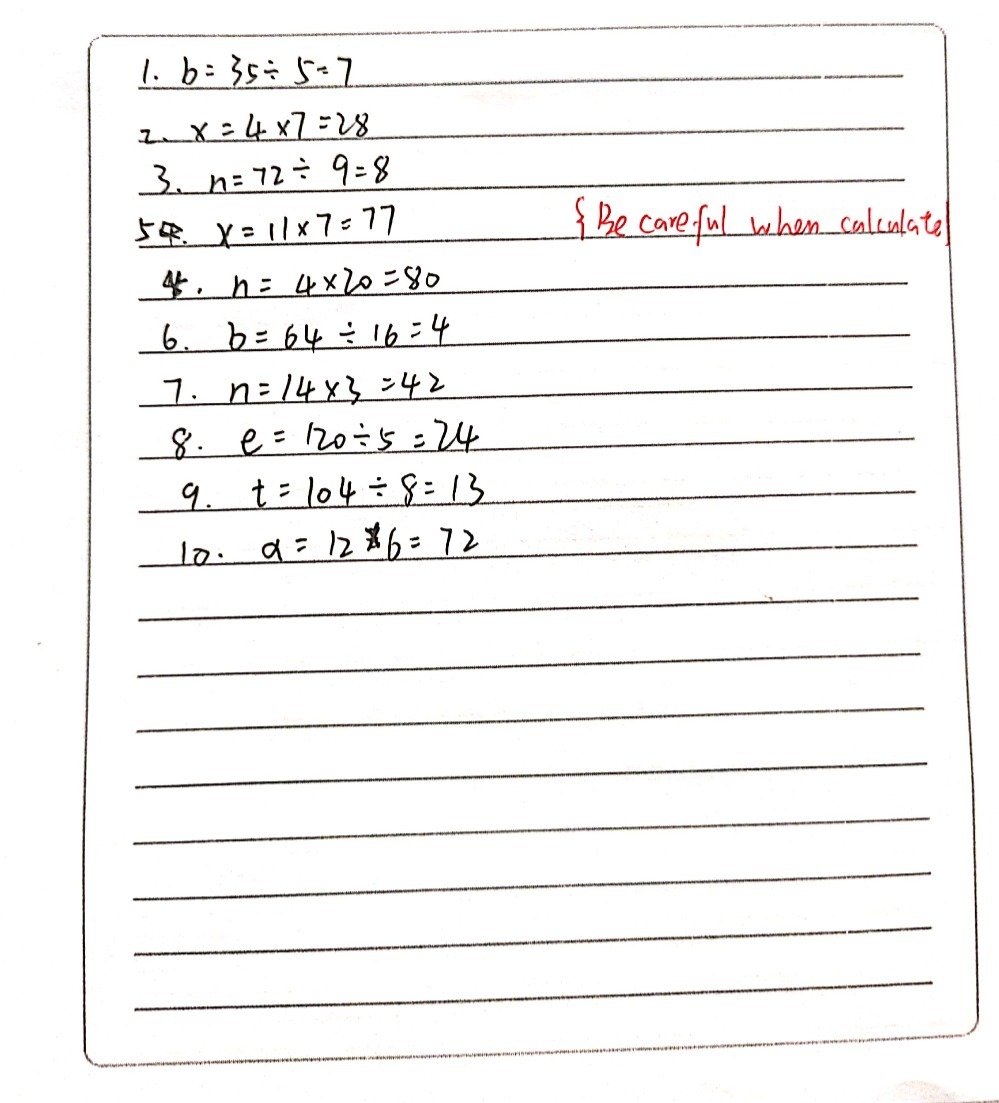 1. b = 35 ÷ 5 = 7
2. x = 4 × 7 = 28
3. n = 72 ÷ 9 = 8
5. x = 11 × 7 = 77 { Be careful when calculate
4. n = 4 × 20 = 80
6. b = 64 ÷ 16 = 4
7. n = 14 × 3 = 42
8. e = 120 ÷ 5 = 24
9. t = 104 ÷ 8 = 13
10. a = 12 × 6 = 72